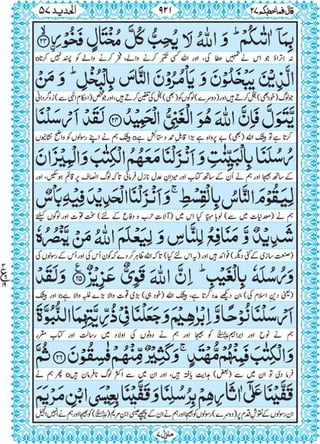 قال فما خطبكم ۲۷ ۹۲۱ الحديد ۵۷
بِمَآ اٰتٰىكُمْ ؕ وَ اللّٰهُ لَا يُحِبُّ كُلَّ مُخْتَالٍ فَخُوْرِ ۙ﴿۲۳﴾
جو اس نے تمہیں عطا کی، اور اللہ کسی تکبر کرنے والے، فخر کرنے والے کو پسند نہیں کرتا
الَّذِيْنَ يَبْخَلُوْنَ وَ يَاْمُرُوْنَ النَّاسَ بِالْبُخْلِ ؕ وَ مَنْ
جو لوگ (خود بھی) بخل کرتے ہیں اور (دوسرے) لوگوں کو (بھی) بخل کی تلقین کرتے ہیں، اور جو شخص (احکامِ الٰہی سے) روگردانی
يَّتَوَلَّ فَاِنَّ اللّٰهَ هُوَ الْغَنِيُّ الْحَمِيْدُ ﴿۲۴﴾ لَقَدْ اَرْسَلْنَا
کرتا ہے تو بیشک اللہ (بھی) بے پروا ہے بڑا قابلِ حمد و ستائش ہے بیشک ہم نے اپنے رسولوں کو واضح نشانیوں
رُسُلَنَا بِالْبَيِّنٰتِ وَ اَنْزَلْنَا مَعَهُمُ الْكِتٰبَ وَ الْمِيْزَانَ
کے ساتھ بھیجا اور ہم نے اُن کے ساتھ کتاب اور میزانِ عدل نازل فرمائی تاکہ لوگ انصاف پر قائم ہو سکیں، اور
لِيَقُوْمَ النَّاسُ بِالْقِسْطِ ۚ وَ اَنْزَلْنَا الْحَدِيْدَ فِيْهِ بَاْسٌ
ہم نے (معدنیات میں سے) لوہا مہیّا کیا اس میں (آلاتِ حرب و دفاع کے لئے) سخت قوّت اور لوگوں کے لئے
شَدِيْدٌ وَّ مَنَافِعُ لِلنَّاسِ وَ لِيَعْلَمَ اللّٰهُ مَنْ يَّنْصُرُهٗ
(صنعت سازی کے کئی دیگر) فوائد ہیں اور (یہ اس لئے کیا) تاکہ اللہ ظاہر کر دے کہ کون اُس کی اور اُس کے رسولوں کی
وَ رُسُلَهٗ بِالْغَيْبِ ؕ اِنَّ اللّٰهَ قَوِيٌّ عَزِيْزٌ ﴿۲۵﴾ وَ لَقَدْ
(یعنی دینِ اسلام کی) بِن دیکھے مدد کرتا ہے، بیشک اللہ (خود ہی) بڑی قوت والا بڑے غلبہ والا ہے اور بیشک
اَرْسَلْنَا نُوْحًا وَّ اِبْرٰهِيْمَ وَ جَعَلْنَا فِيْ ذُرِّيَّتِهِمَا النُّبُوَّةَ
ہم نے نوح اور ابراہیم کو بھیجا اور ہم نے دونوں کی اولاد میں رسالت اور کتاب مقرر
وَ الْكِتٰبَ فَمِنْهُمْ مُّهْتَدٍ ۚ وَ كَثِيْرٌ مِّنْهُمْ فٰسِقُوْنَ ﴿۲۶﴾ ثُمَّ
فرما دی تو ان میں سے (بعض) ہدایت یافتہ ہیں، اور ان میں سے اکثر لوگ نافرمان ہیں پھر ہم نے
قَفَّيْنَا عَلٰۤى اٰثَارِهِمْ بِرُسُلِنَا وَ قَفَّيْنَا بِعِيْسَى ابْنِ مَرْيَمَ
منزل ۷